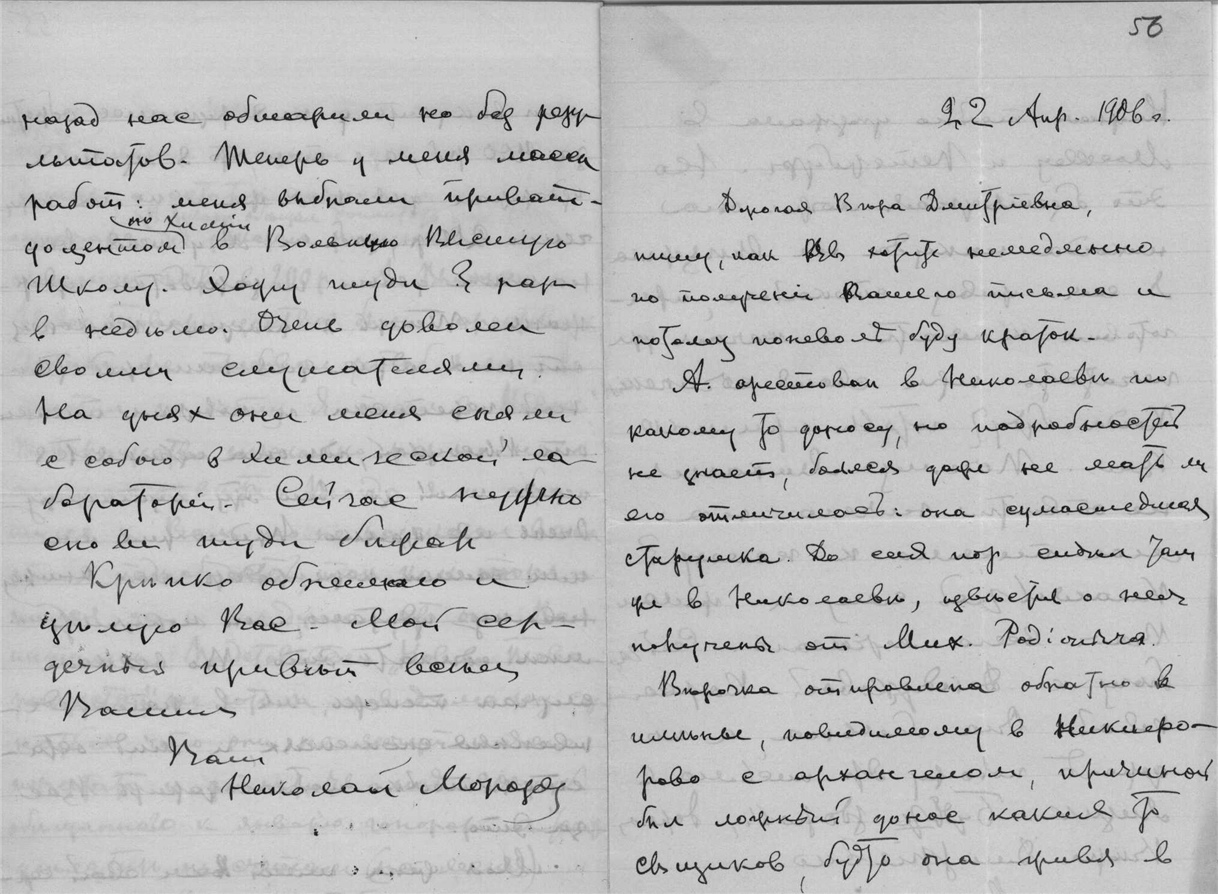 назад нас обшарили но без резу-
льтатов. Теперь у меня масса
работ: меня выбрали приват-
по химіи
доцентом в Вольную Высшую
Школу. Хожу туда 3 раза
в недѣлю. Очень доволен
своими слушателями.
На днях они меня сняли
с собою в химической ла-
бораторіи. Сейчас нужно
снова туда
Крѣпко обнимаю и
цѣлую Вас. Мой сер-
дечный привѣт всем
Вашим
Ваш
Николай Морозов
56
22 Апр. 1906 г.
Дорогая Вѣра Дмитріевна,
пишу, как Вы хотите немедленно
по полученіи Вашего письма и
потому поневолѣ буду краток.
А. арестован в Николаевѣ по
какому то доносу, но подробностей
не знаетъ, боялся даже не мать ли
его отличилась: она сумасшедшая
старушка. До сих пор сидѣл там
же в Николаевѣ, извѣстія о нем
получены от Мих. Родіоныча.
Вѣрочка отправлена обратно в
имѣнье, повидимому в Никифо-
рово с архангелом, причиной
был ложный донос каких то
сыщиков, будто она привя в